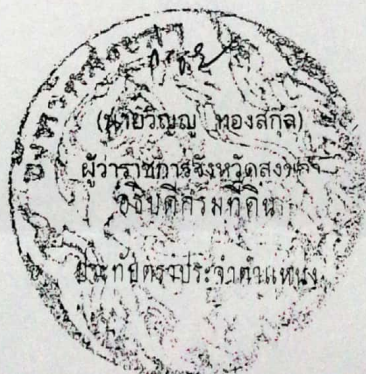 (นายวิญญู ทองสกุล)
ผู้ว่าราชการจังหวัดสงขลา
อธิบดีกรมที่ดิน
ประทับตราประจำตำแหน่ง